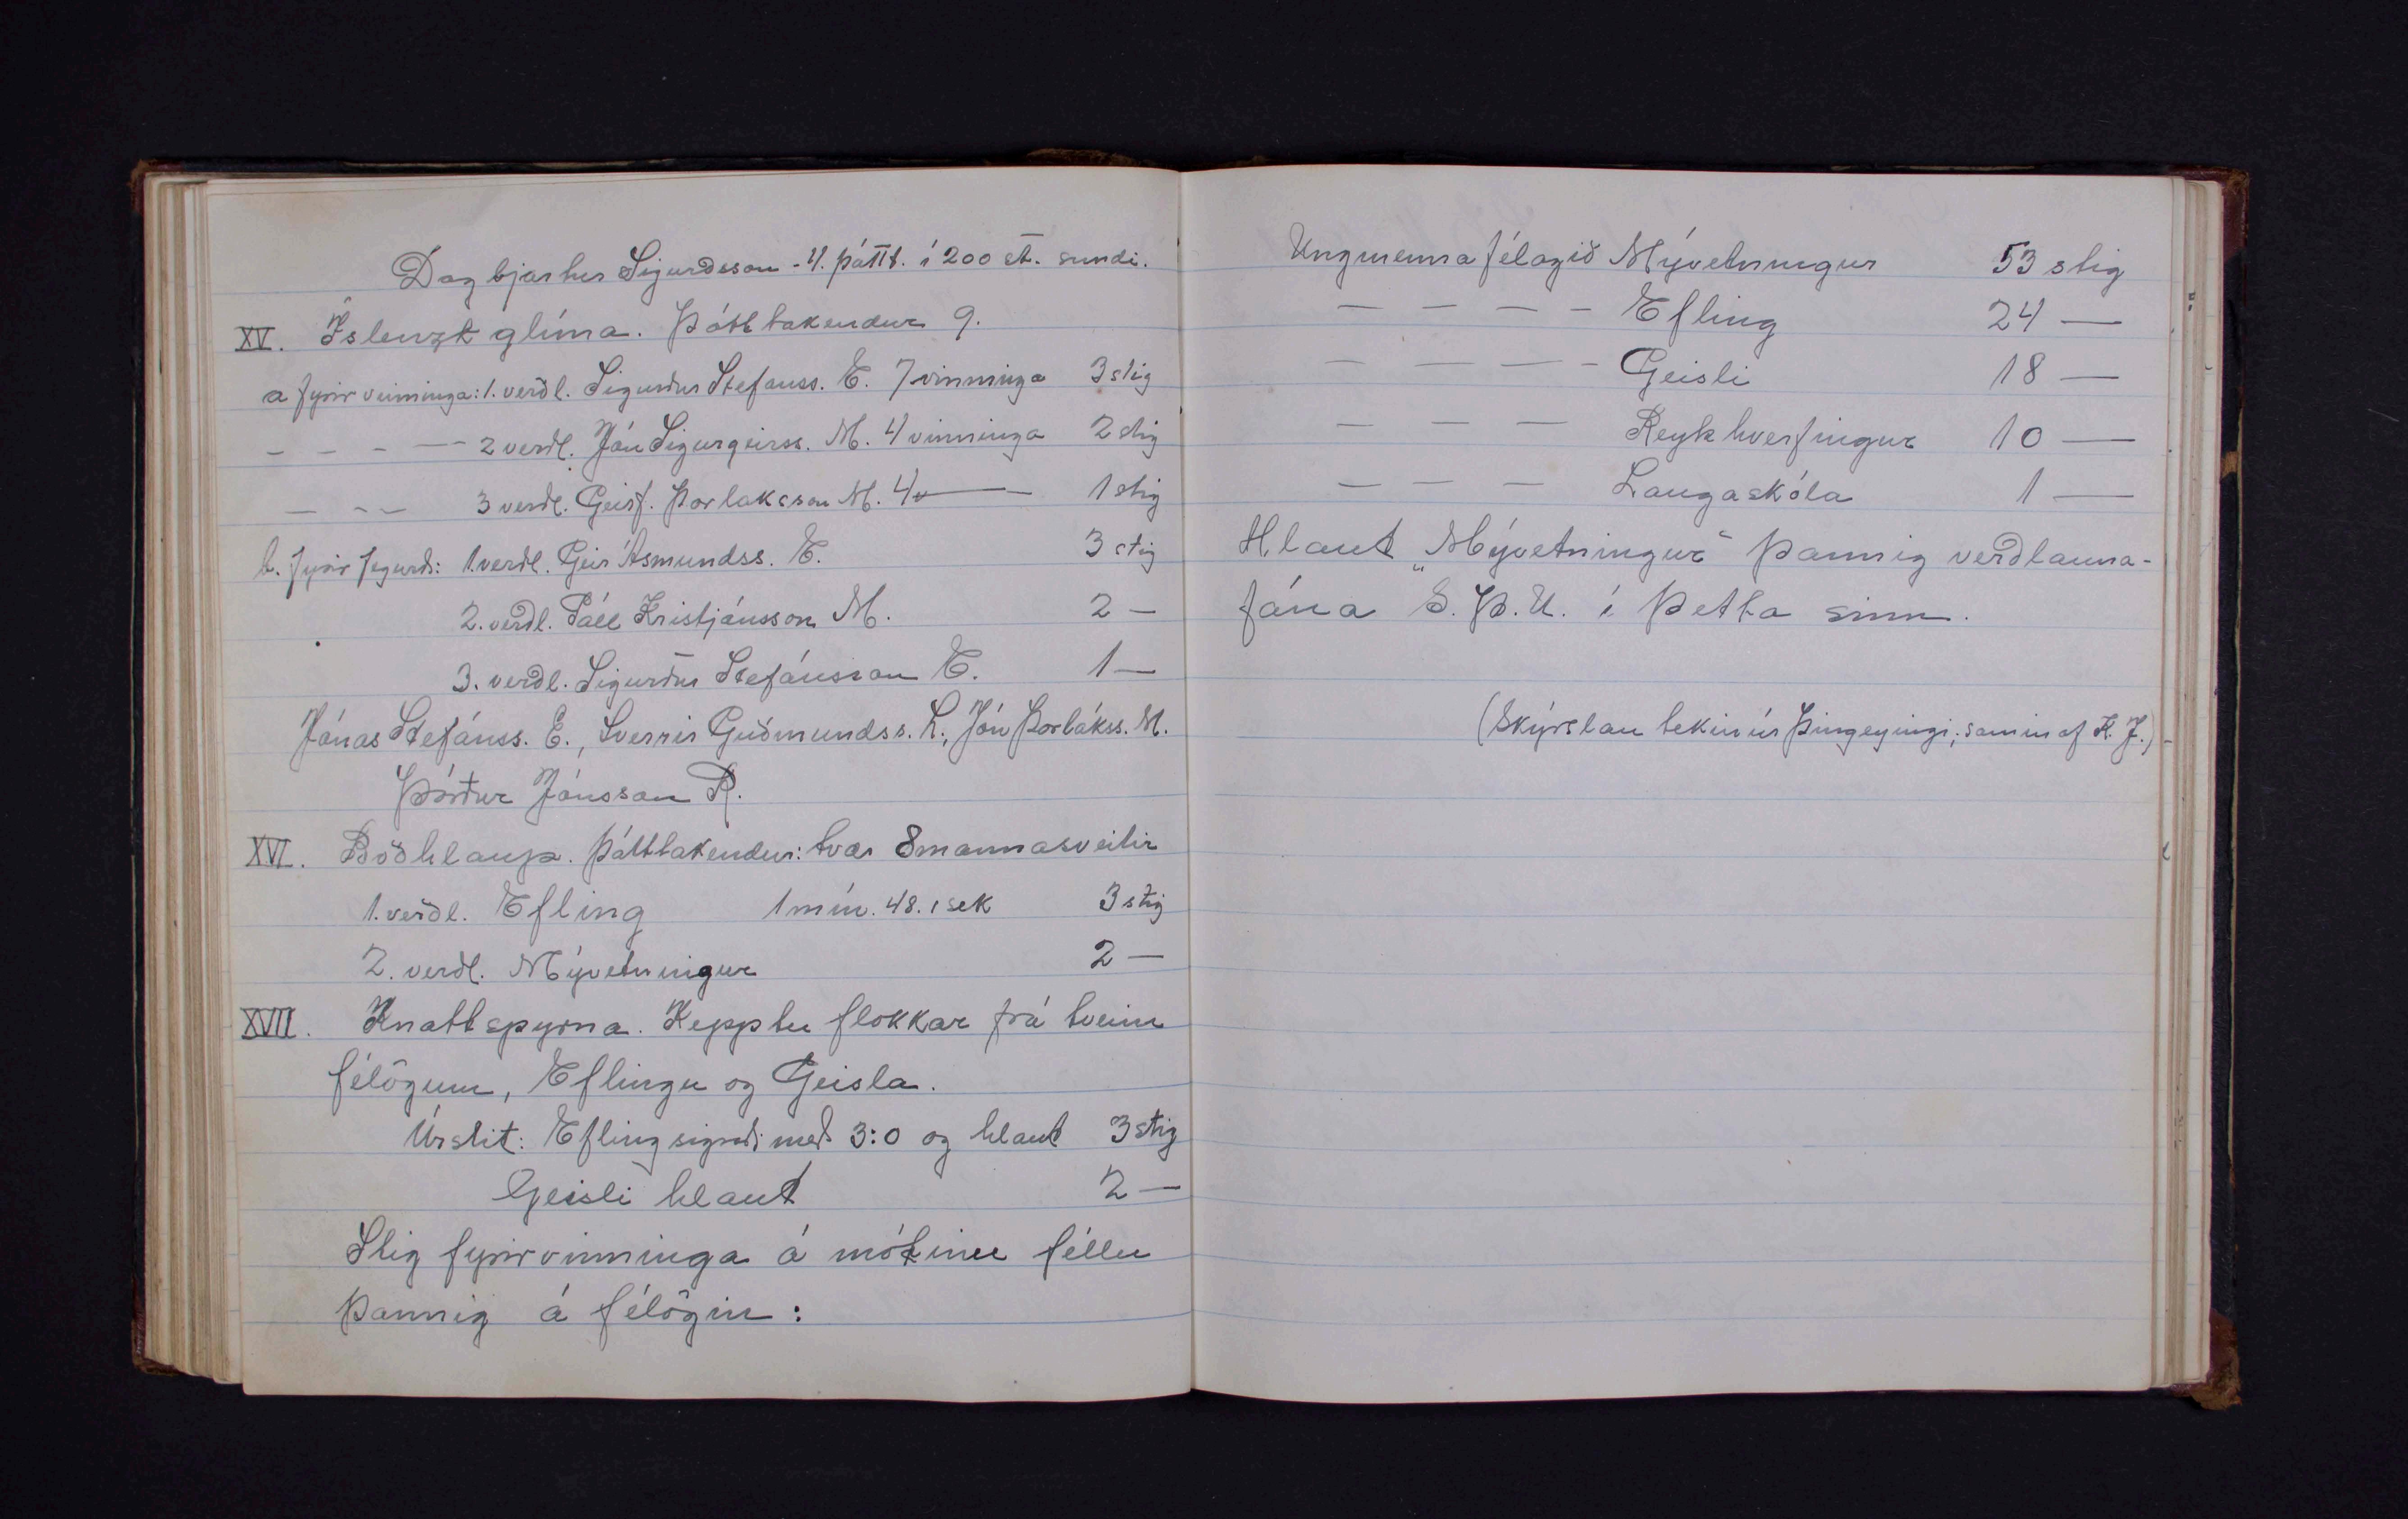 Dagbjartur Sigurðsson - 4. þáttt. í 200 st. sundi.
XV. Íslenzk glíma. Þátttakendur 9.
a fyrir vinninga: 1. verðl. Sigurður Stefánss. E. 7 vinninga 3 stig
- - - — 2 verðl. Jón Sigurgeirss. M. 4 vinninga 2 stig
- - - 3 verðl. Geirf. Þorláksson M. 4 — 1 stig
b. fyrir fegurð: 1. verðl. Geir Ásmundss. E. 3 stig
2. verðl. Páll Kristjánsson M. 2 —
3. verðl. Sigurður Stefánsson E. 1 —
Jónas Stefánss. E., Sverrir Guðmundss. L., Jón Þorlákss. M.
Þórður Jónsson R.
XVI. Boðhlaup. Þátttakendur: tvær 8 mannasveitir
1. verðl. Efling 1 mín. 48.1 sek 3 stig
2. verðl. Mývetningur 2 —
XVII. Knattspyrna. Kepptu flokkar frá tveim
félögum, Eflingu og Geisla.
Úrslit: Efling sigraði með 3:0 og hlaut 3 stig
Geisli hlaut 2 —
Stig fyrir vinninga á mótinu féllu
þannig á félögin:
Ungmennafélagið Mývetningur 53 stig
— — — — Efling 24 —
— — — — Geisli 18 —
— — — Reykhverfingur 10 —
— — — Laugaskóla 1 —
Hlaut „Mývetningur“ þannig verðlauna-
fána S.Þ.U. í þetta sinn.
(Skýrslan tekin úr Þingeyingi; samin af K. J.)